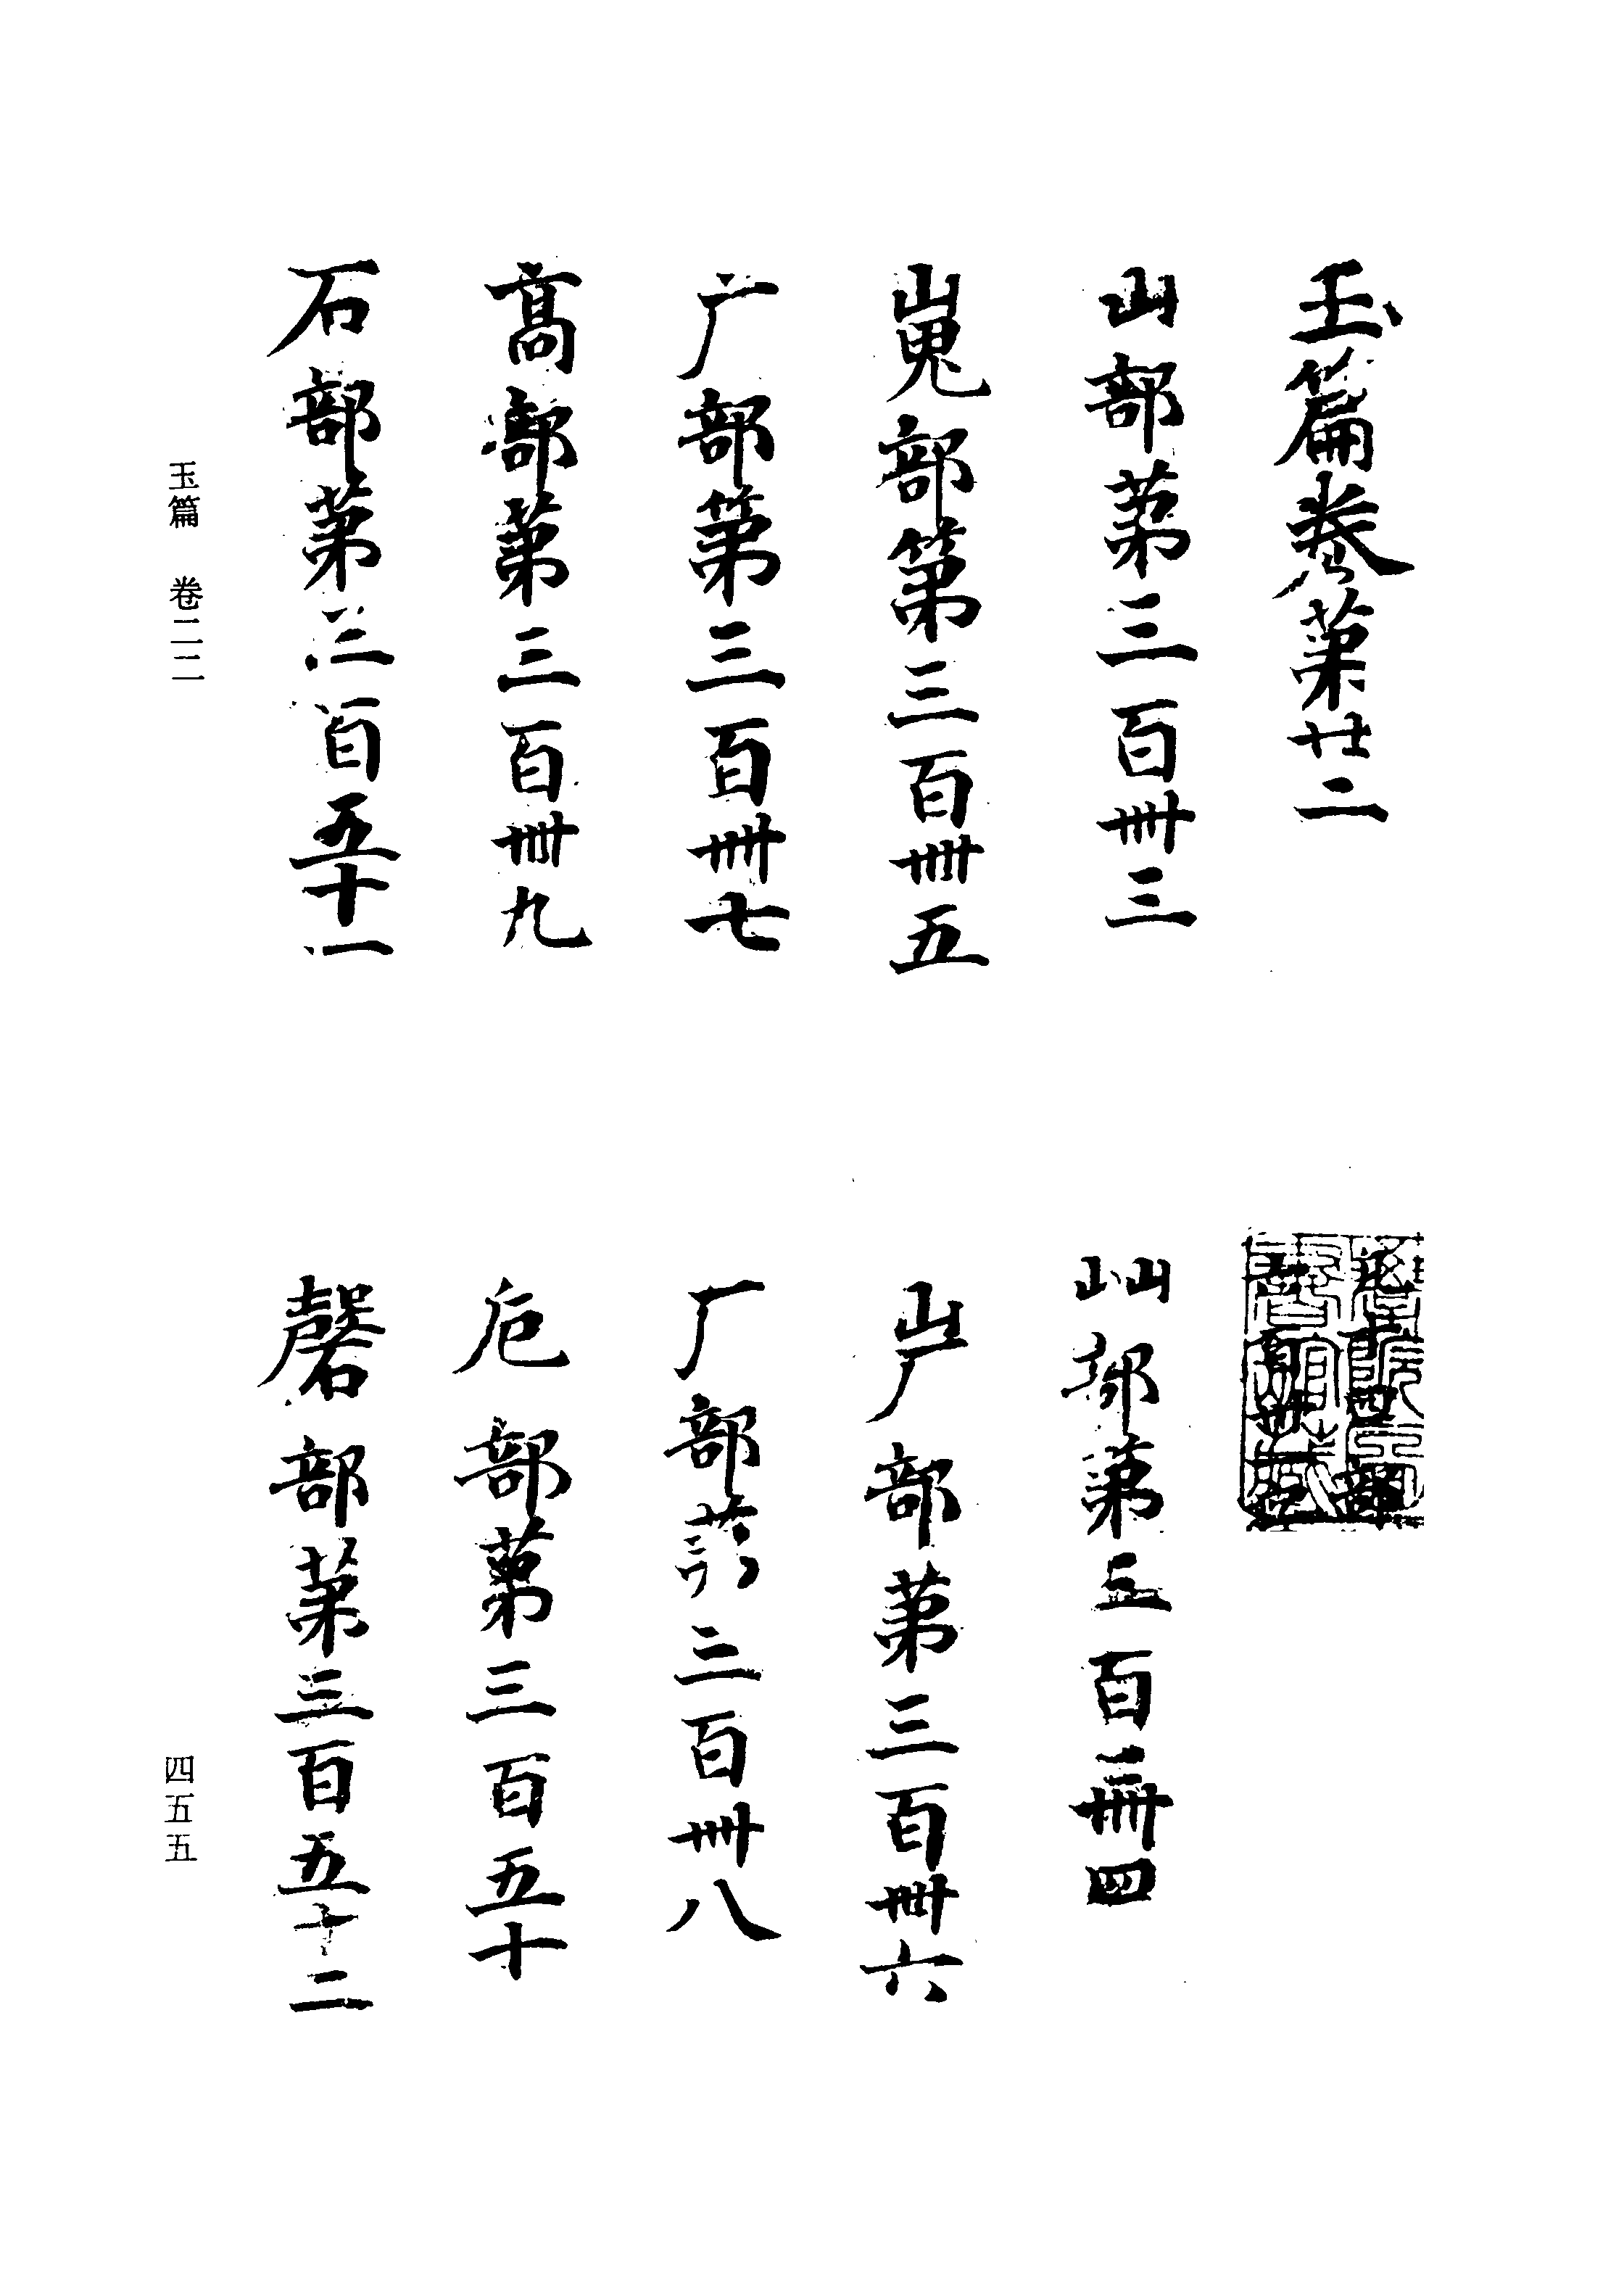 玉篇卷苐廿二
山部苐三百卌三
屾部苐三百卌四
嵬部第三百卌五
屵部苐三百卌六
广部第三百卌七
厂部苐三百卌八
髙部苐三百卌九
危部苐三百五十
石部苐三百五十一
磬部苐三百五十二
玉篇 卷二二
四五五